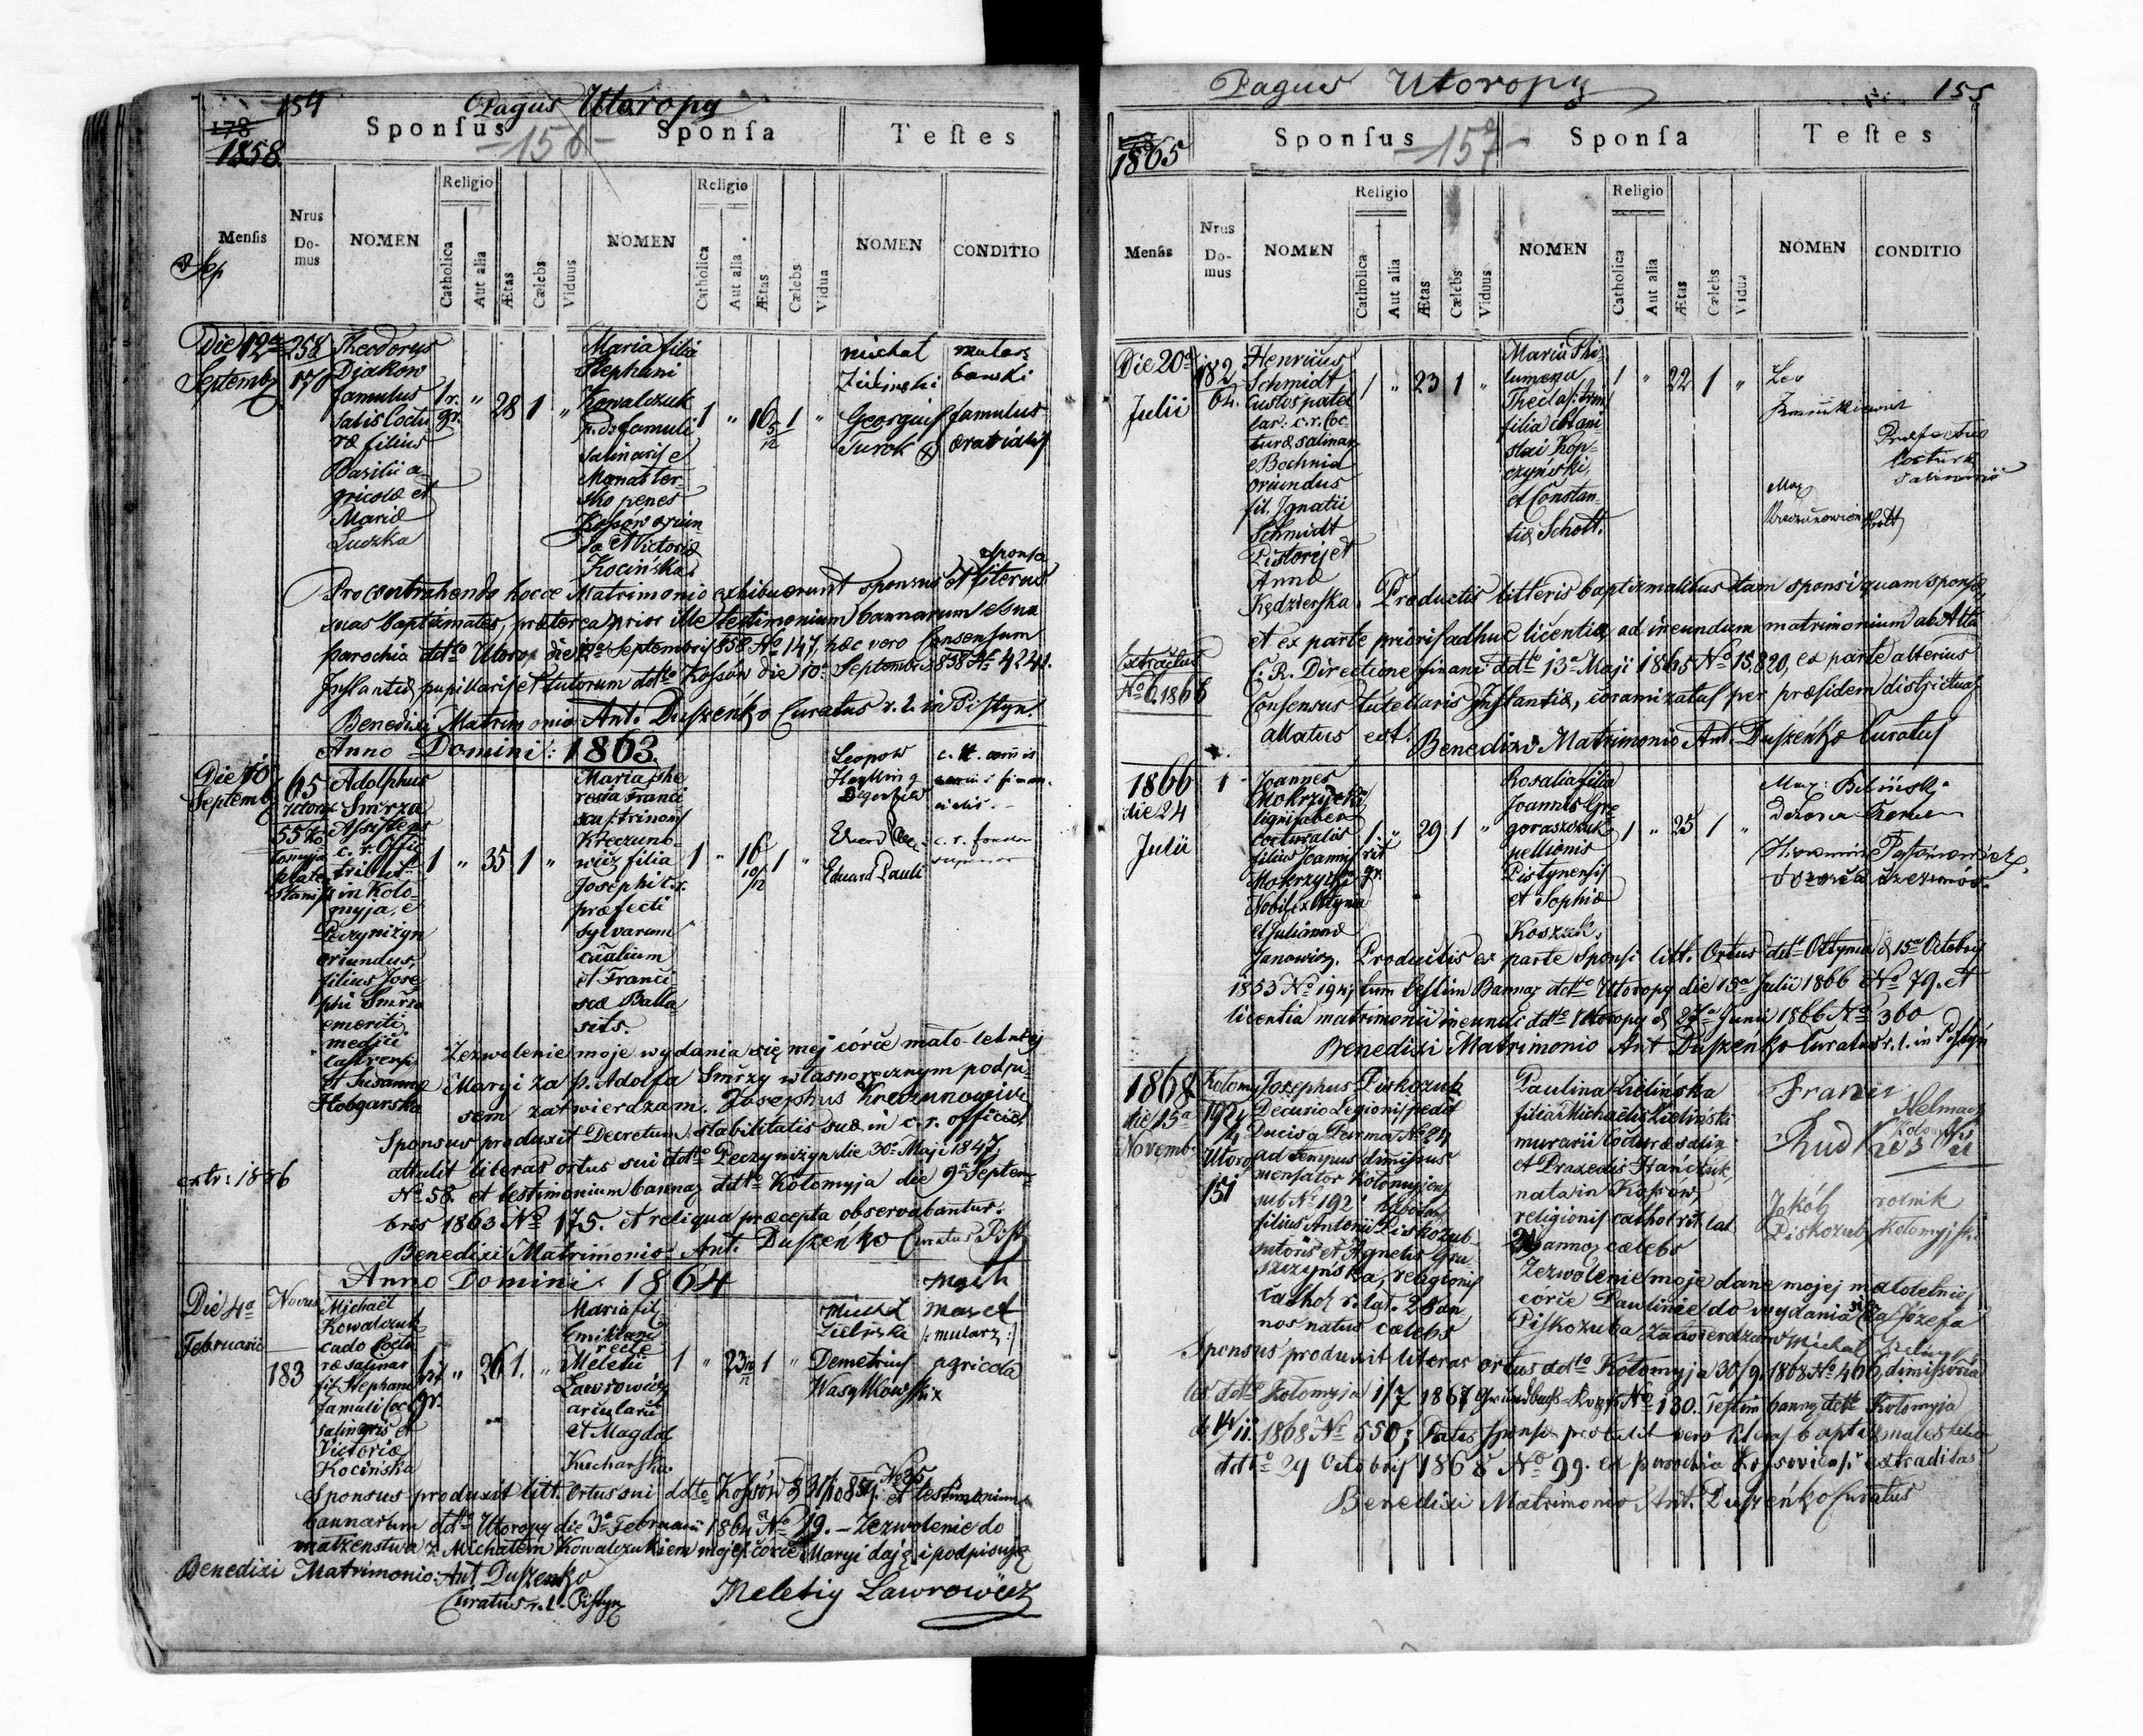 154
Pagus Utoropy
178
1858.
Sponſus
-156-
Sponſa
Teſtes
Menſis
Nrus Do-mus
NOMEN
Religio
Catholica
Aut alia
Ætas
Cælebs
Viduus
NOMEN
Religio
Catholica
Aut alia
Ætas
Cælebs
Vidua
NOMEN
CONDITIO
Sep
Die 12a
Septemb
258
170
Theodorus
Djakow
famulus
Salis Coctu
ræ filius
Basilii a-
gricolæ et
Mariæ
Luczka
1 r. gr.
"
28
1
"
Maria filia
Stephani
Kowalczuk
famuli
salinaris e
Monaster-
sko penes
Kossów oriun
da et Victoriæ
Kocińska
1
"
16 5/12
1
"
Michał
Zieliński
mularz
Georgius
Surok
famulus
Pro contrahendo hocce Matrimonio exhibuerunt sponsus et sponsa literas
suas baptizmales, præterea prior ille testimonium bannarum e sua
parochia ddto Utorop die 12a Septembris 858 No 147, hæc vero Consensum
Instantiæ pupillaris et tutorum ddto Kossów die 10a Septembris 858 No 4241.
Benedixi Matrimonio Ant. Duszeńko Curatus r. l. in Pistyn.
Anno Domini: 1863.
Die 10
Septemb
65
Utorop
55 Ko
lomyja
Adolphus
Smrza
Assistens
c. r. Offic
in Kolo-
myja, e
Peczyniżyn
oriundus,
filius Jose
phi Smrza
emeriti
medici
castrensi
et Susannæ
Hobgarska
1
"
35
1
"
Maria The
resia Franci
sca trinom
Kreczuno-
wicz filia
Josephi c. r.
præfecti
sylvarum
et Franci
scæ Balla
sits.
1
"
16 10/12
1
"
Eduard Pauli
Zezwolenie moje wydania się mej córce mało letniej
Maryi za p. Adolfa Smrzy własnoręcznym podpi-
sem zatwierdzam. Josephus Kreczunowicz
Sponsus produxit Decretum stabilitatis suæ in c. r. officio,
attulit literas ortus sui ddto Peczyniżyn die 30a Maji 1847
No 58. et testimonium bannar ddto Kołomyja die 9a Septem-
bris 1863 No 175. et reliqua præcepta observabantur.
Benedixi Matrimonio Ant. Duszeńko Curatus Pist
extr: 1886
Anno Domini 1864
Die 4a
Februarii
183
Michaël
Kowalczuk
cado Coctu
ræ salinar
fil. Stephani
famuli coc
salinaris et
Victoriæ
Kocińska
1 rit gr.
"
26
1.
"
Maria fil
Emiliani
recte
Meletii
Lawrowicz
arcularii
et Magdal
Kucharska.
1
"
23
1
"
Michał
Zieliński
/: mularz :/
Demetrius
Wasylkowski x
agricola
Sponsus produxit litt. Ortus sui ddto Kossów
No 35
et testimonium
bannarum ddto Utoropy die 3a Februarii 1864 No 19. – Zezwolenie do
małżeństwa z Michałem Kowalczukiem mojej córce Maryi daję i podpisuję
Benedixi Matrimonio: Ant. Duszeńko
Curatus r. l. Pistyn
Meletiy Lawrowicz
Pagus Utoropy
155
1865
Sponſus
-157-
Sponſa
Teſtes
Menſis
Nrus Do-mus
NOMEN
Religio
Catholica
Aut alia
Ætas
Cælebs
Viduus
NOMEN
Religio
Catholica
Aut alia
Ætas
Cælebs
Vidua
NOMEN
CONDITIO
Die 20a
Julii
182
64.
Henricus
Schmidt
Custos
c. r. Coc-
turæ salinar
e Bochnia
oriundus
fil. Ignatii
Schmidt
Pistoris et
Annæ
Kędzierska.
1
"
23
1
"
Maria Phi-
lumena
Thecla
filia Stani
slai Kop-
czyński,
et Constan-
tiæ Schott.
1
"
22
1
"
Leo
Præfectus
Cocturæ
Productis litteris baptizmalibus tam sponsi quam sponsæ,
et ex parte prioris adhuc licentia, ad ineundum matrimonium ab Alta
C. R. Directione finanс ddto 13a Maji 1865 No 15,820, ex parte alterius
Consensus tutellaris Instantiæ, coramizatus per præsidem districtus
allatus est. Benedixi Matrimonio Ant. Duszeńko Curatus
Extractus
No 6. 1866
1866
die 24
Julii
1
Joannes
Mokrzycki
lignifaber
cocturalis
filius Joannis
Mokrzycki
Nobil. ex Ottynia
et Juliannæ
Janowicz.
1. rit gr.
"
29
1
"
Rosalia filia
Joannis Gre
goraszczuk
pellionis
Pistynensis
et Sophiæ
Koszak.
1
"
25
1
"
Max: Biliński
dozorca
Productis ex parte Sponsi litt. Ortus ddto Ottynia d 15a Octobris
1853 No 194, tum testim Bannar ddto Utoropy die 15a Julii 1866 No 79. et
licentia matrimonii ineundi ddto Utoropy d 27a Junii 1866 No 360
Benedixi Matrimonio Ant Duszeńko Curatus r. l. in Pistyn
1868
die 15a
Novemb.
Kolomy
192/4
Utorop
151
Josephus Piskozub
Decurio Legionis pedit
Ducis a Parma No 24
ad tempus dimissus
mensator Kolomyjens
sub No 192
filius Antonii Piskozub
sutoris et Agnetis Gru
szczyńska, religionis
cathol r. lat. 28 an
nos natus cælebs
Paulina Zielińska
filia Michaelis Zieliński
murarii Cocturæ salin
et Praxedis Hańczuk,
nata in Kossów,
religionis cathol rit. lat
annor cælebs
Franz
Jakób
Piskozub
rolnik
Kołomyjski
Zezwolenie moje dane mojej małoletniej
córce Paulinie do wydania się za Józefa
Piskozuba zatwierdzam Michał Zieliński
Sponsus produxit literas ortus ddto Kołomyja 30/9. 1868 No 466, dimissoria
les ddto Kołomyja 1/7 1867 Grundbuchs No 130. Testim bannor ddto Kołomyja
d. 14/11. 1868 No 550; Pater sponsæ vero literas baptizmales
ddto 24 Octobris 1868 No 99. ex parochia Kossoviensi extraditas
Benedixi Matrimonio Ant. Duszeńko Curatus